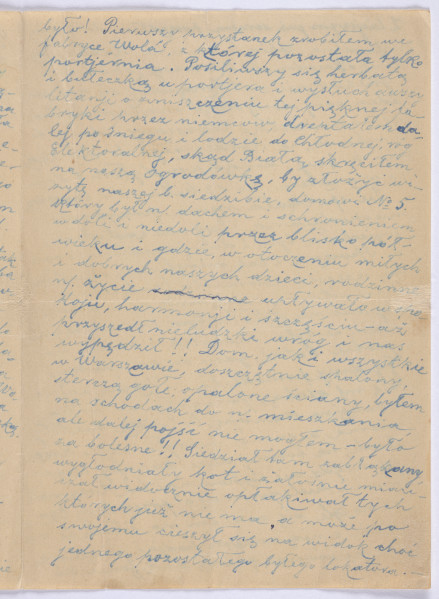 było! Pierwszy przystanek zrobiłem we
fabryce "Wola", z której pozostała tylko
portjernia. Posiliwszy się herbatą
i bułeczką u portjera i wysłuchawszy
litanji o zniszczeniu tej pięknej fa-
bryki przez niemców, dreptałem da-
lej po śniegu i lodzie do Chłodnej, po
Elektoralnej, skąd Białą skręciłem
na naszą Ogrodówkę, by złożyć wi-
zytę naszej b. siedzibie, domowi № 5.
który był n. dachem i schronieniem
w doli i niedoli przez blisko pół-
wieku i gdzie, w otoczeniu miłych
i dobrych naszych dzieci, rodzinne
n. życie upływało w spo-
koju, harmonji i szczęściu - aż
przyszedł nieludzki wróg i nas
wypędził!! Dom, jak i wszystkie
w Warszawie, doszczętnie spalony,
sterczą gołe, opalone ściany, byłem
na schodach do n. mieszkania
ale dalej pojść nie mogłem - było
za bolesne!! Siedział tam zabłąkany
wygłodniały kot i żałośnie miau-
czał widocznie opłakiwał tych
których już nie ma, a może po
swojemu cieszył się na widok choć
jednego pozostałego byłego lokatora. -